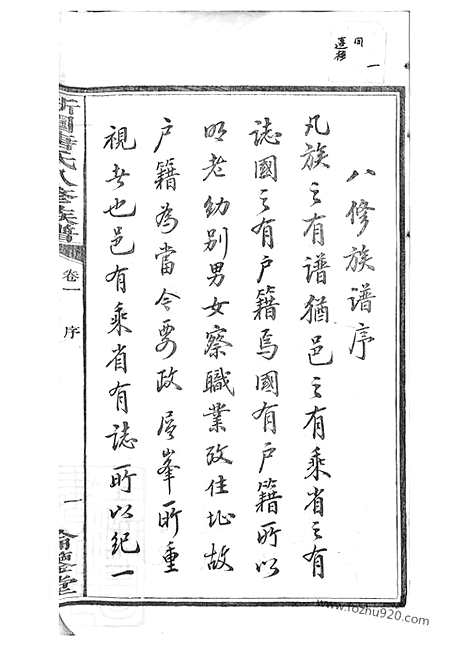 八修族譜序
凡族之有譜猶邑之有乘省之有
誌國之有户籍焉國有户籍所以
明老幼別男女察職業改住址故
户籍為當今要政層峯所重
視者也邑有乘省有誌所以紀一
氏八修族譜
卷一
序
一
堂
www.fozhu920.com